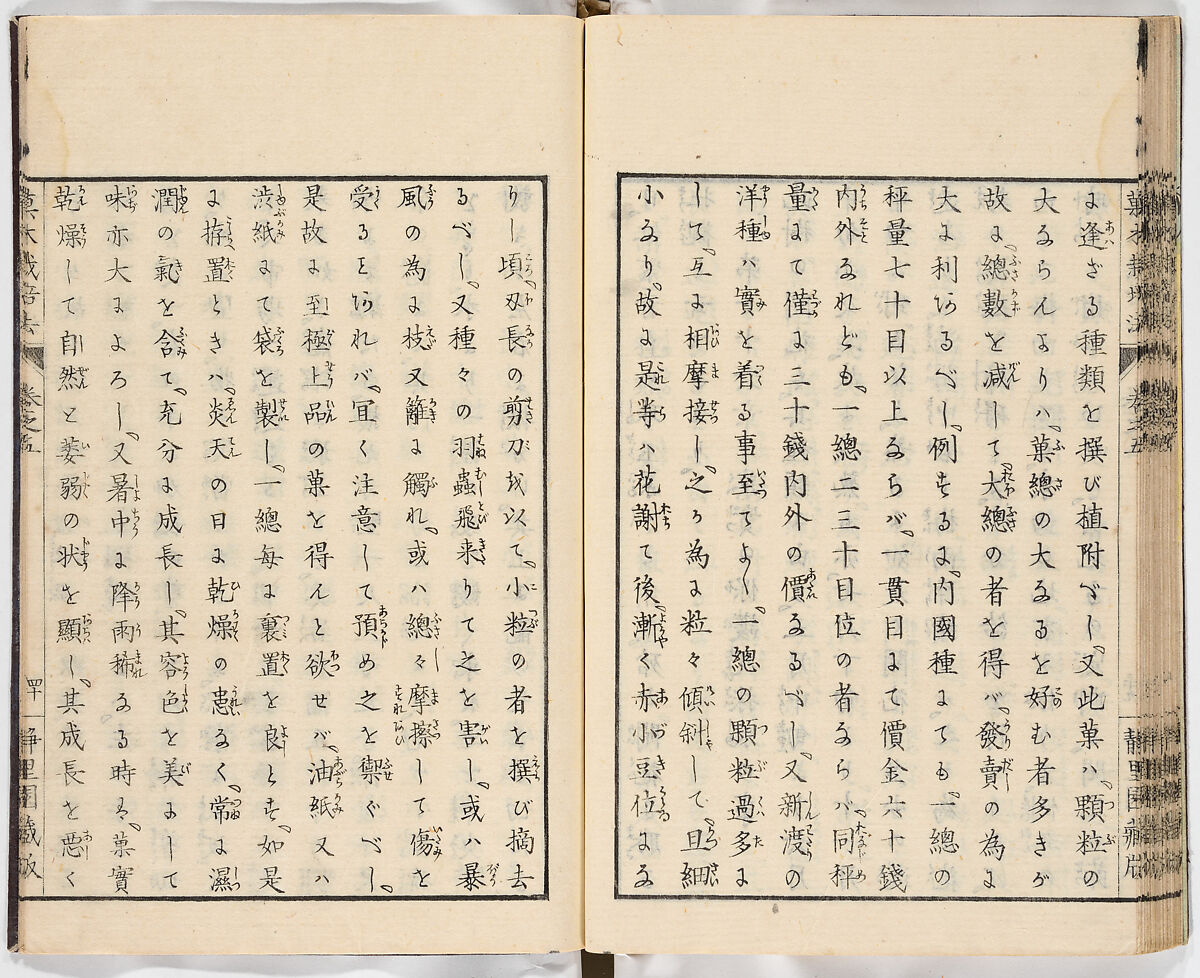 に逢ざる種類を撰び植附べし、又此菓ハ、顆粒の
大ならんよりハ、菓總の大なるを好む者多きが
故に、總數を減して、大總の者を得バ、發賣の為に
大に利あるべし、例するに、内國種にても、一總の
秤量七十目以上ならバ、一貫目にて價金六十錢
内外なれども、一總二三十目位の者ならバ、同秤
量にて僅に三十錢内外の價なるべし、又新渡の
洋種ハ實を着る事至てよし、一總の顆粒過多に
して、互に相摩接し、之か為に粒々傾斜して、且細
小なり、故に是等ハ花謝て後、漸く赤小豆位にな
靜里園藏版
りし頃、刄長の剪刀を以て、小粒の者を撰び摘去
るべし、又種々の羽蟲飛来りて之を害し、或ハ暴
風の為に枝又籬に觸れ、或ハ總々摩擦して傷を
受ることあれバ、宜く注意して預め之を禦ぐべし、
是故に至極上品の菓を得んと欲せバ、油紙又ハ
渋紙にて袋を製し、一總毎に裏置を良とす、如是
に拵置ときハ、炎天の日に乾燥の患なく、常に濕
潤の氣を含て、充分に成長し、其容色を美にして
味亦大によろし、又暑中に降雨稀なる時は、菓實
乾燥して自然と萎弱の状を顯し、其成長を悪く
菓木栽培法 卷之五 四十一 靜里園藏版